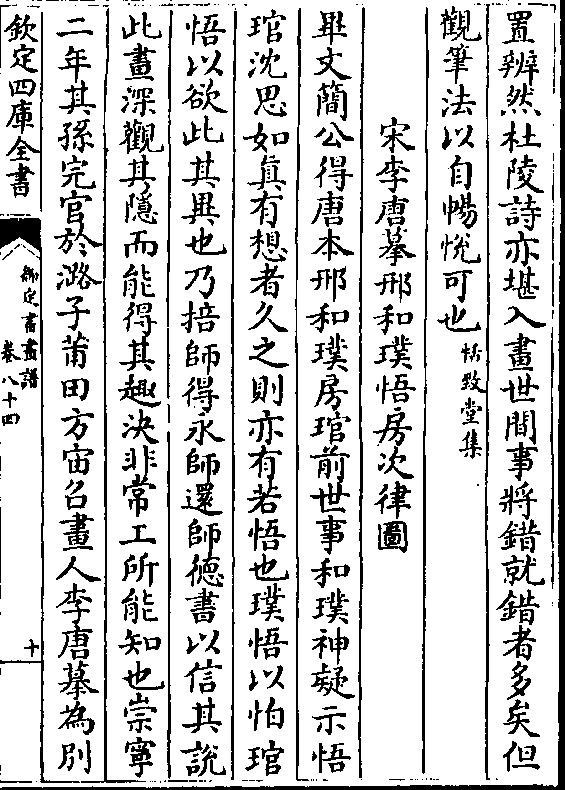 置辨然杜陵詩亦堪入畫世間事將錯就錯者多矣但
觀筆法以自暢悅可也恬致堂集
宋李唐摹邢和璞悟房次律圖
畢文簡公得唐本邢和璞房琯前世事和璞神凝示悟
琯沈思如真有想者久之則亦有若悟也璞悟以怕琯
悟以欲此其異也乃掊師得永師還師德書以信其說
此畫深觀其隱而能得其趣決非常工所能知也崇寧
二年其孫完官於潞子莆田方宙召畫人李唐摹為別
欽定四庫全書
御定書畫譜
卷八十四
十